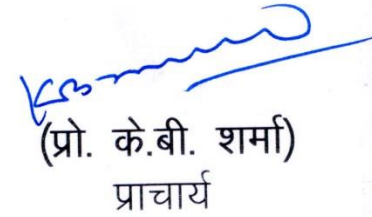 (प्रो. के.बी. शर्मा)
प्राचार्य